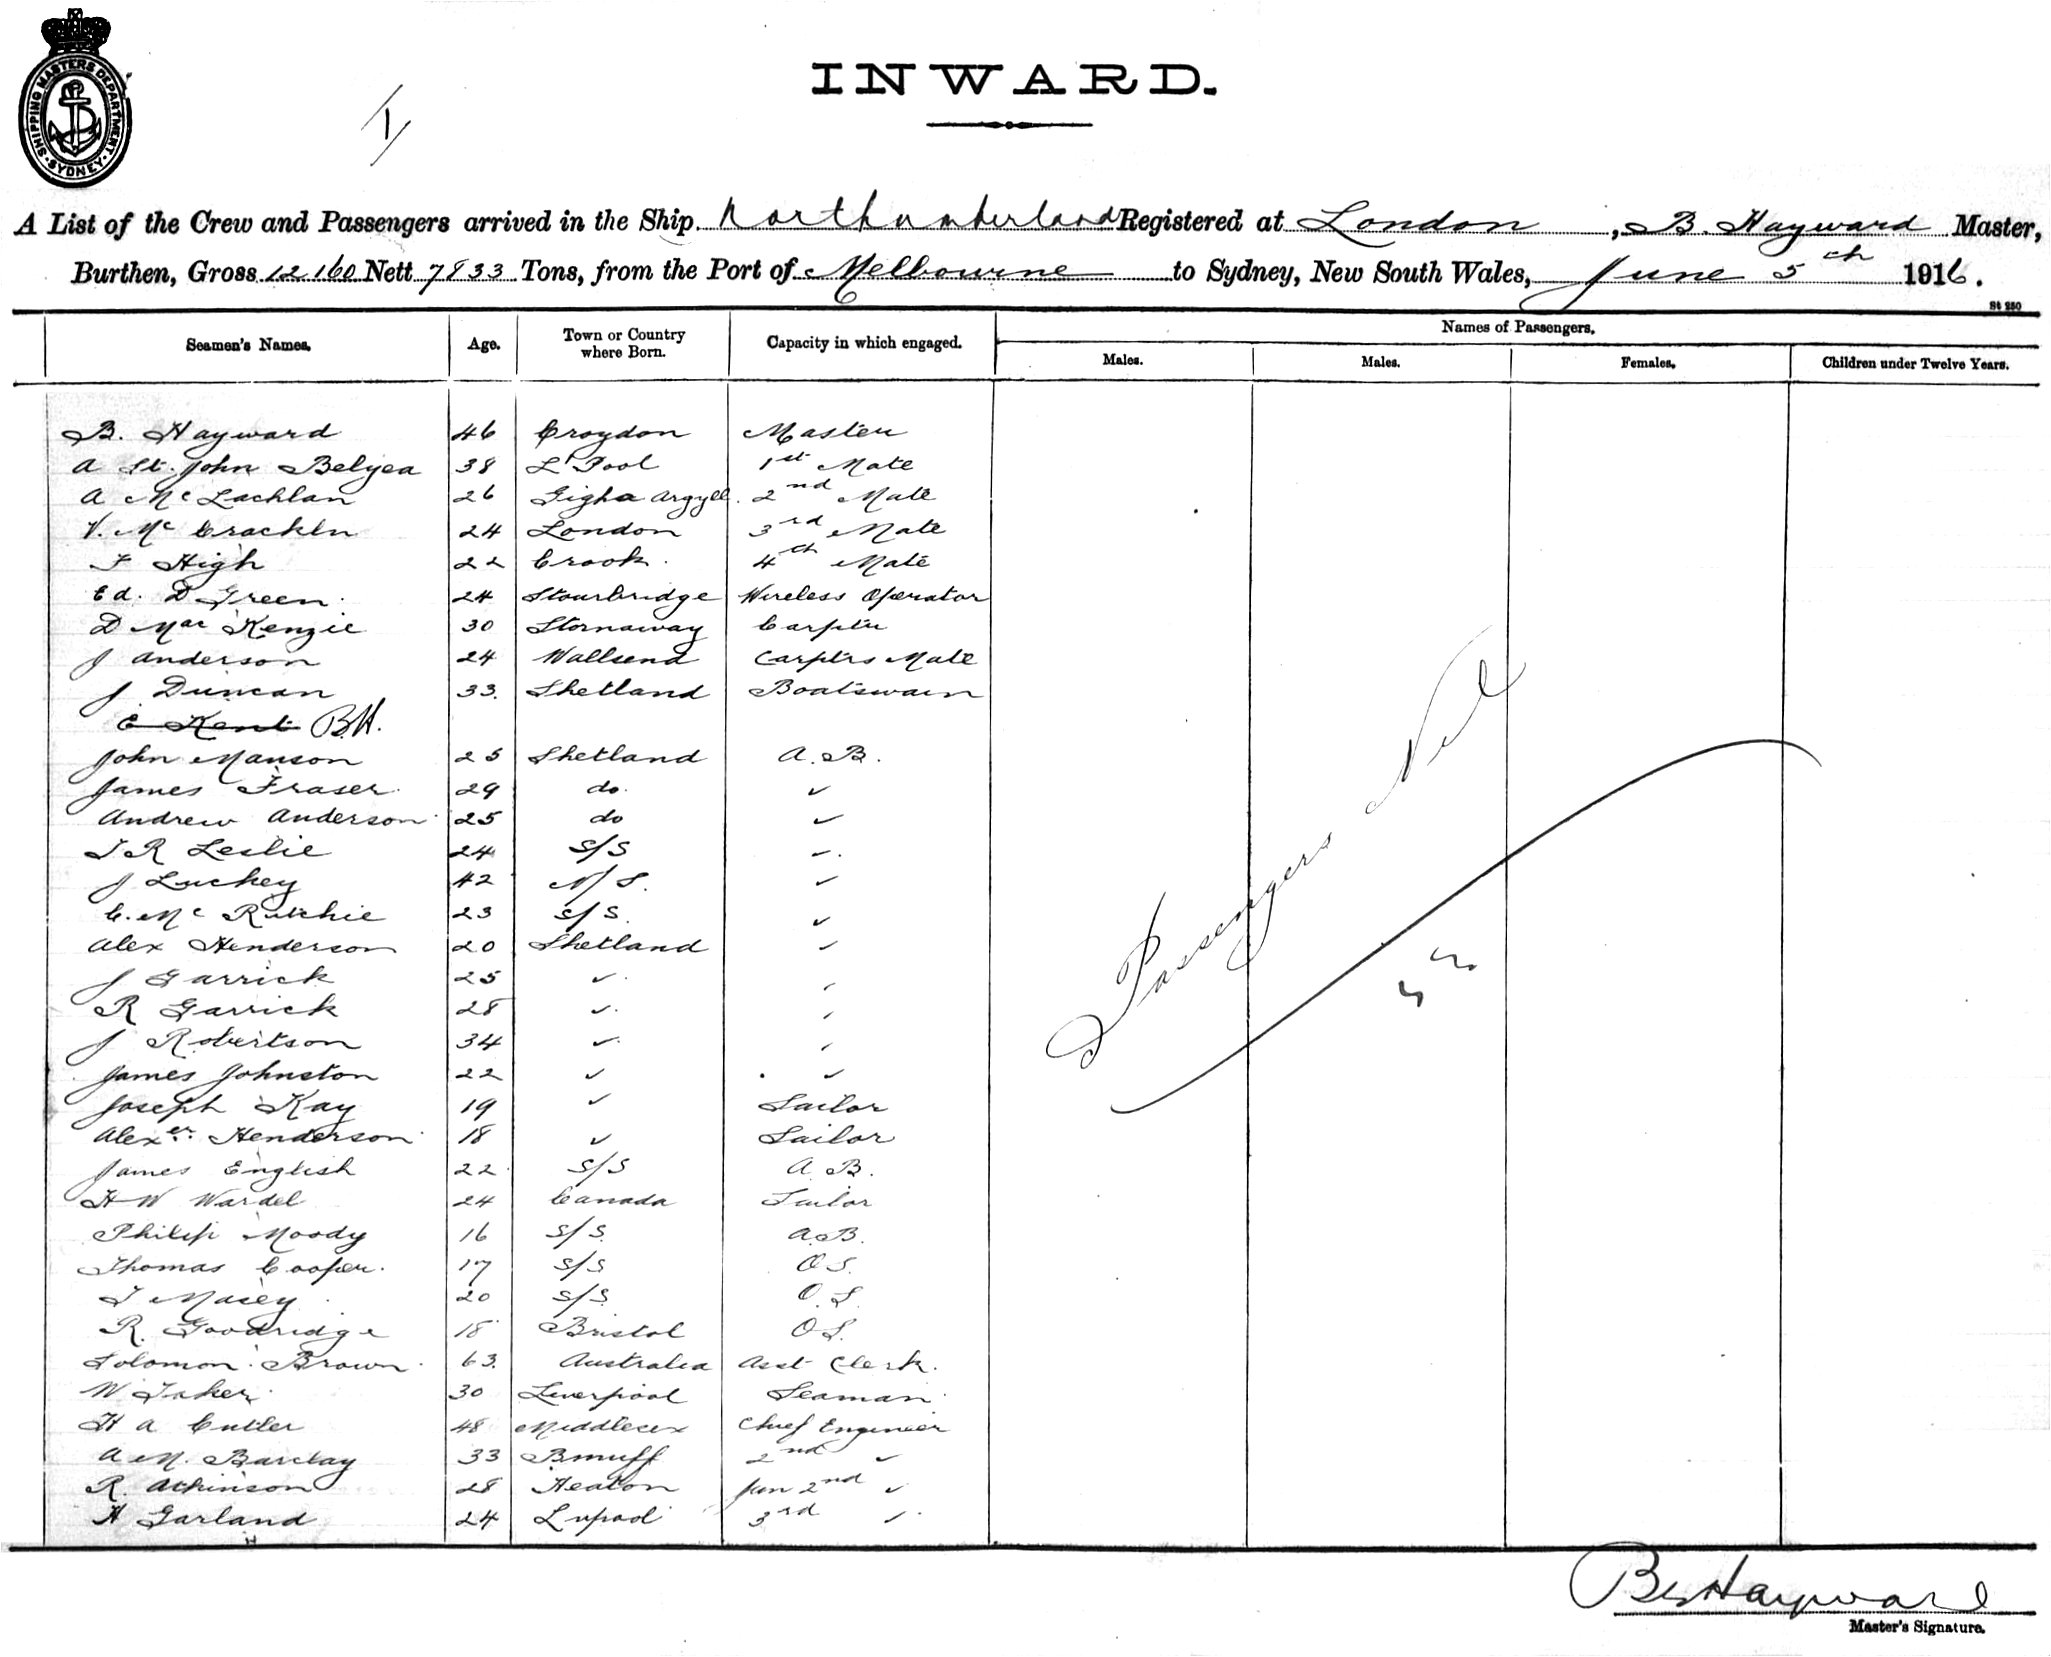 SHIPPING MASTERS DEPARTMENT · SYDNEY ·
INWARD.
A List of the Crew and Passengers arrived in the Ship Northumberland Registered at London, B. Hayward Master,
Burthen, Gross 12160 Nett 7833 Tons, from the Port of Melbourne to Sydney, New South Wales, June 5th 1916.
St 250
Seamen's Names. Age. Town or Country where Born. Capacity in which engaged. Names of Passengers.
Males. Males. Females. Children under Twelve Years.
B. Hayward 46 Croydon Master
A St. John Belyea 38 L'Pool 1st Mate
A McLachlan 26 Gigha Argyll. 2nd Mate
V. McCracken 24 London 3rd Mate
F High 22 Crook. 4th Mate
Ed. D Green. 24 Stourbridge Wireless Operator
D MacKenzie 30 Stornaway Carpter
J Anderson 24 Wallsend Carptrs Mate
J Duncan 33. Shetland Boatswain
E Kent B.H.
John Manson 25 Shetland A.B.
James Fraser 29 do. ✓
Andrew Anderson 25 do ✓
T R Leslie 24 S/S ✓
J Luckey 42 N/S. ✓
C. McRitchie 23 S/S. ✓
Alex Henderson 20 Shetland ✓
J Garrick 25 ✓ ✓
R Garrick 28 ✓ ✓
J Robertson 34 ✓ ✓
James Johnston 22 ✓ ✓
Joseph Kay 19 ✓ Sailor
Alexer. Henderson 18 ✓ Sailor
James English 22 S/S A.B.
H W Wardel 24 Canada Sailor
Philip Moody 16 S/S A.B.
Thomas Cooper. 17 S/S O S.
T Masey 20 S/S O.S.
R. Goodridge 18 Bristol O S.
Solomon Brown. 63. Australia Asst Clerk.
W Taker 30 Liverpool Seaman
H A Cutler 48 Middlesex Chief Engineer
A M. Barclay 33 Bmuff 2nd ✓
R. Atkinson 28 Heaton Jun 2nd ✓
H Garland 24 L'vpool 3rd ✓
Passengers Nil
B Hayward
Master's Signature.